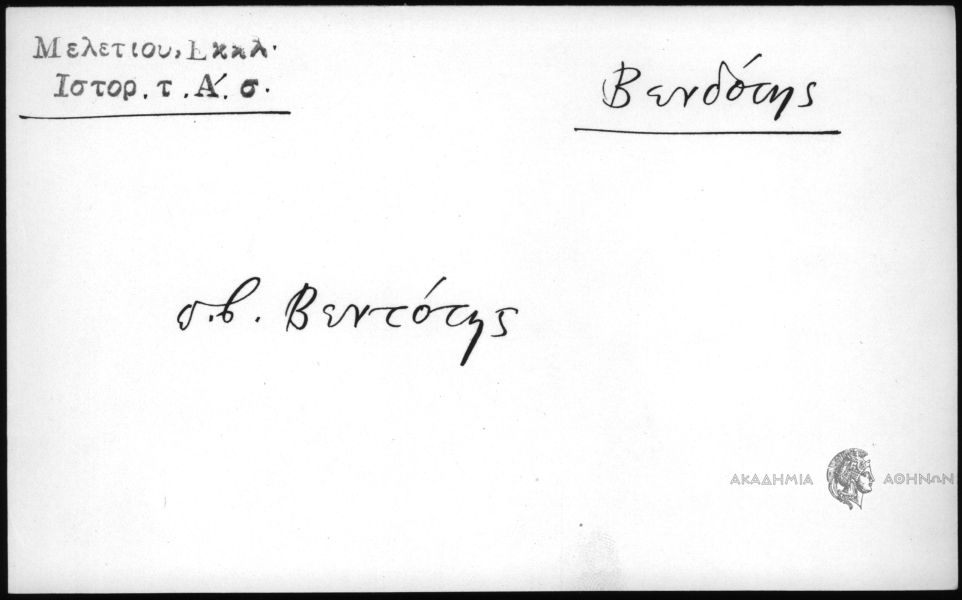 Μελετιου, Εκκλ.
Ιστορ. τ. Α΄. σ.
Βενδότης
σ.β. Βεντότης
ΑΚΑΔΗΜΙΑ ΑΘΗΝΩΝ